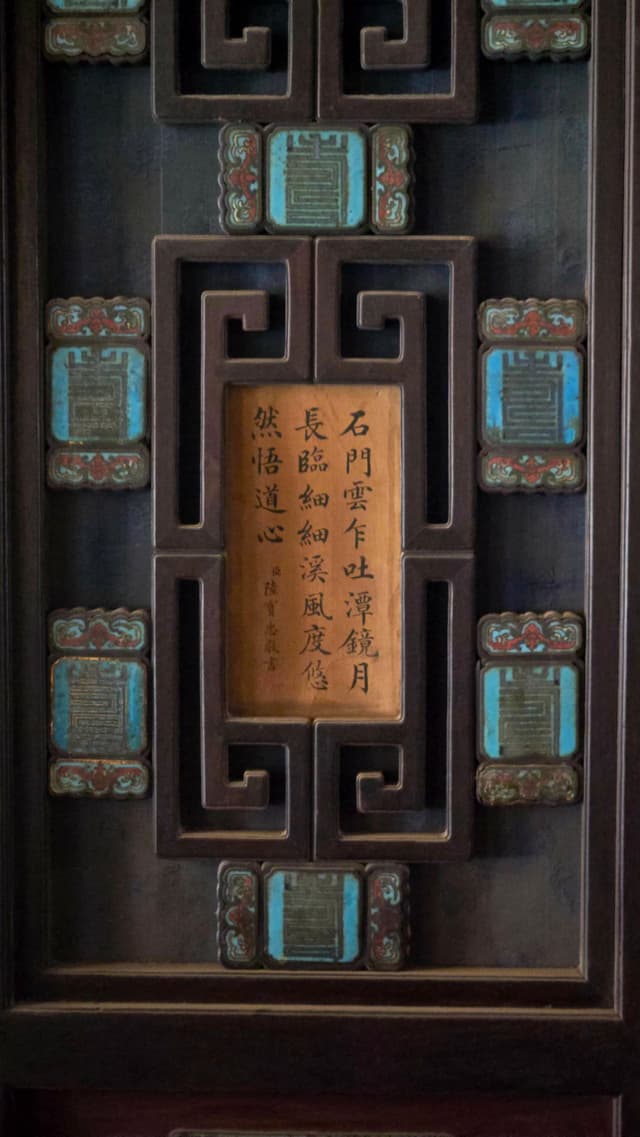 石門雲乍吐潭鏡月
長臨細細溪風度悠
然悟道心
臣陸寶忠敬書